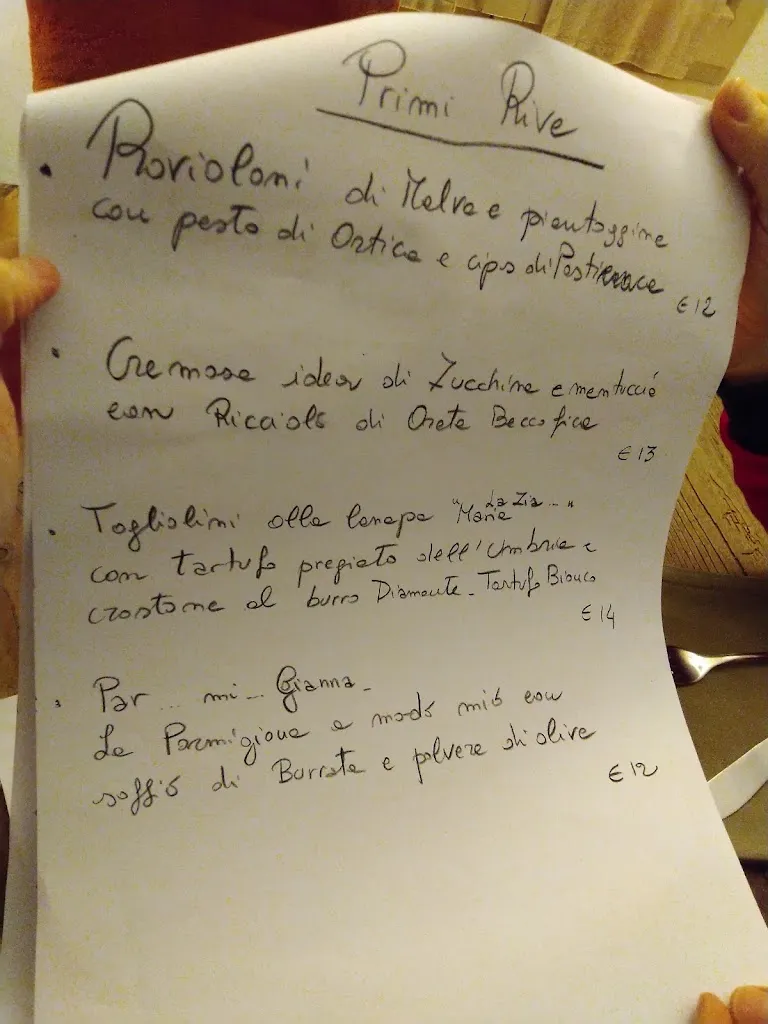 Primi Rive
• Ravioloni di Malva e piantaggine
con pesto di Ortica e cips di Pastinaca
€ 12
• Cremosa idea di Zucchine e mentuccia
con Ricciola di Orata Beccofico
€ 13
• Tagliolini alla lanapa "La Zia... Maria"
con tartufo pregiato dell'Umbria e
crostone al burro Diamante - Tartufo Bianco
€ 14
• Par... mi... Gianna -
La Parmigiana a modo mio con
soffio di Burrata e polvere di olive
€ 12